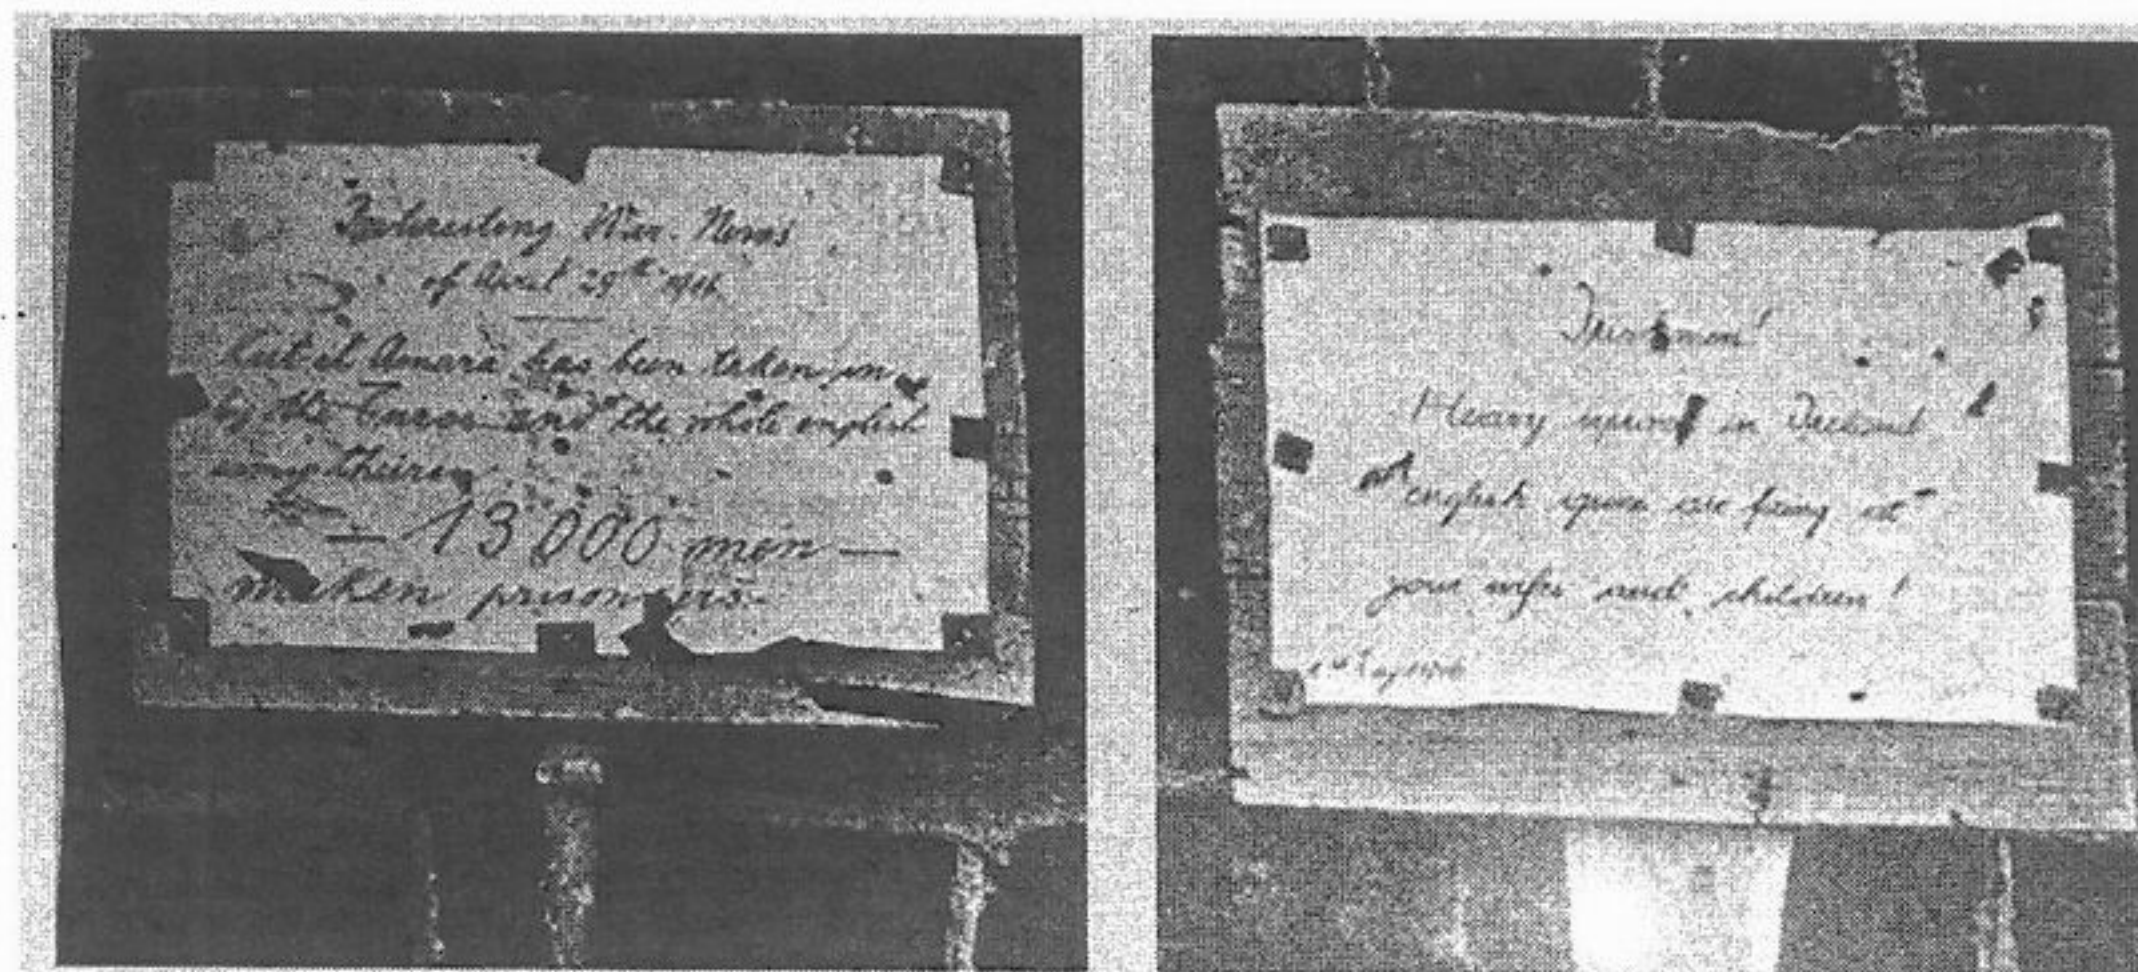 Interesting War-News
of April 29th 1916
Kut el Amara has been taken in
by the Turcs and the whole english
army therein
— 13000 men —
maken prisoners.
Irishmen!
Heavy uproar in Ireland
english guns are firing at
your wifes and children!
1st May 1916